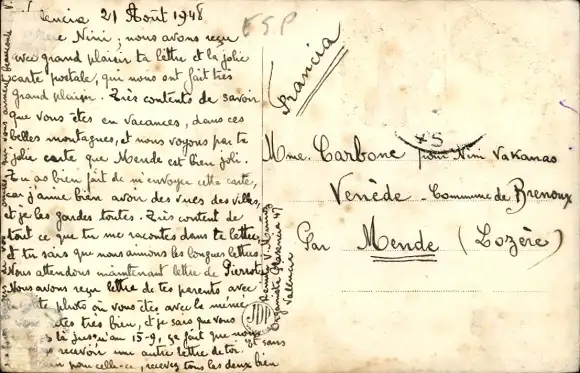 Valencia 21 Août 1948
Nini, nous avons reçu
avec grand plaisir ta lettre et la jolie
carte postale, qui nous ont fait très
grand plaisir. Très contents de savoir
que vous êtes en vacances, dans ces
belles montagnes, et nous voyons par ta
jolie carte que Mende est bien joli.
Tu as bien fait de m'envoyer cette carte,
car j'aime bien avoir des vues des villes,
et je les gardes toutes. Très content de
tout ce que tu me racontes dans ta lettre
et tu sais que nous aimons les longues lettres
Nous attendons maintenant lettre de Pierrot
Nous avons reçu lettre de tes parents avec
photo où vous êtes avec la mémé
êtes très bien, et je sais que vous
là jusqu'au 15-9, ça fait que nous
recevoir une autre lettre de toi. Et sans
pour celle-ce, recevez tous les deux bien
ESP
Francia
45
Mme. Carbone pour Nini Vakanas
Venède - Commune de Brenoux
Par Mende (Lozère)
Organista Plasencia 47
Valencia
JDP